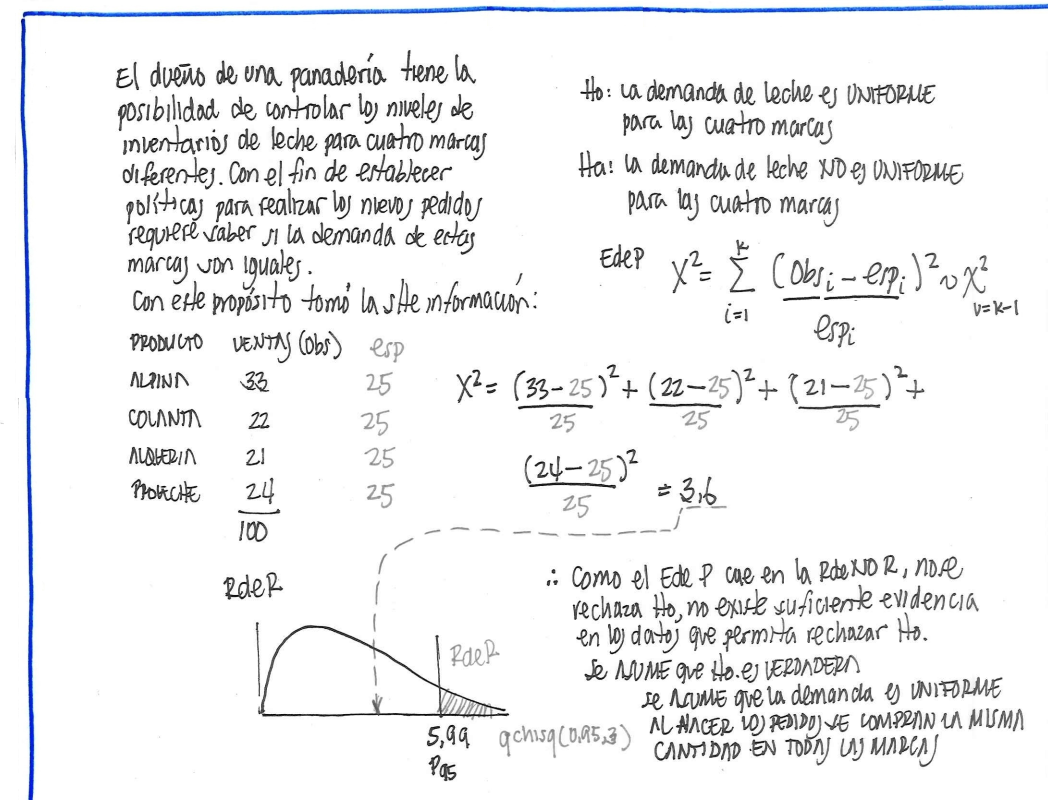 El dueño de una panadería tiene la
posibilidad de controlar los niveles de
inventarios de leche para cuatro marcas
diferentes. Con el fin de establecer
políticas para realizar los nuevos pedidos
requiere saber si la demanda de estas
marcas son iguales.
Con este propósito tomó la site información:
PRODUCTO VENTAS (Obs) esp
ALPINA 33 25
COLANTA 22 25
ALQUERIA 21 25
PROLECHE 24 25
100
Ho: La demanda de leche es UNIFORME
para las cuatro marcas
Ha: La demanda de leche NO es UNIFORME
para las cuatro marcas
EdeP X² = Σ (Obsi - espi)² ~ χ²
k
i=1
espi
v=k-1
X² = (33-25)² + (22-25)² + (21-25)² +
25 25 25
(24-25)² = 3,6
25
RdeR
RdeR
5,99 qchisq(0,95,3)
P95
∴ Como el EdeP cae en la RdeNOR, no se
rechaza Ho, no existe suficiente evidencia
en los datos que permita rechazar Ho.
se ASUME que Ho. es VERDADERA
se ASUME que la demanda es UNIFORME
AL HACER LOS PEDIDOS SE COMPRAN LA MISMA
CANTIDAD EN TODAS LAS MARCAS